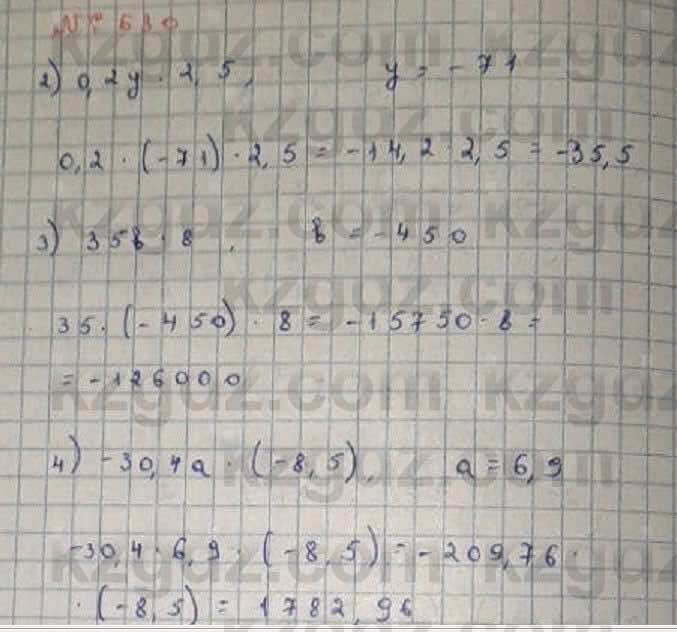 № 680
2) 0,2y · 2,5, y = -71
0,2 · (-71) · 2,5 = -14,2 · 2,5 = -35,5
3) 35b · 8, b = -450
35 · (-450) · 8 = -15750 · 8 =
= -126000
4) -30,4a · (-8,5), a = 6,9
-30,4 · 6,9 · (-8,5) = -209,76 ·
· (-8,5) = 1782,96
kzgdz.com